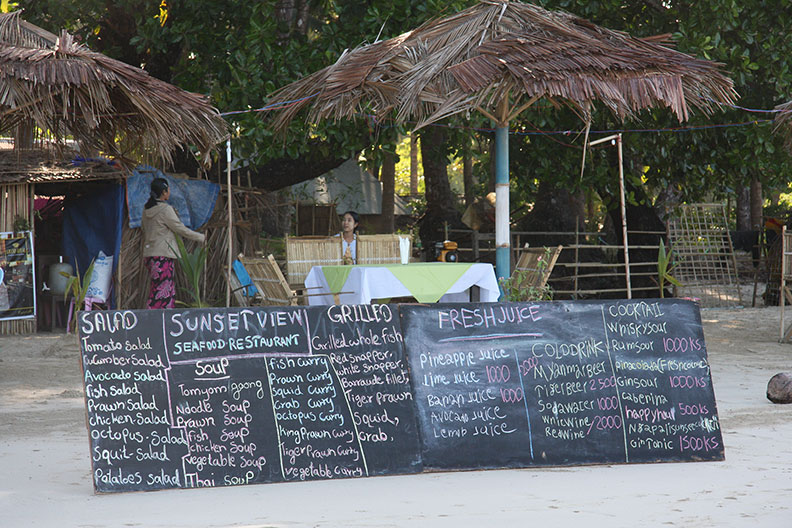 SALAD
Tomato Salad
CuCumber Salad
Avocado Salad
fish Salad
Prawn Salad
Chicken Salad
octopus Salad
Squit Salad
Potatoes Salad
SUNSET VIEW
SEAFOOD RESTAURANT
SOUP
Tomyam
Noodle Soup
Prawn Soup
fish Soup
Chicken Soup
vegetable Soup
Thai Soup
fish Curry
Prawn Curry
Squid Curry
Crab Curry
octopus Curry
King Prawn Curry
Tiger Prawn Curry
vegetable Curry
GRILLED
Grilled whole fish
Red Snapper,
white Snapper,
Barracude fillet,
Tiger prawn
Squid,
Crab,
FRESH JUICE
pineapple Juice
Lime Juice 1000
Banan Juice 1000
Avocado Juice
Lemon Juice
COLD DRINK
Myanmar Beer
Tiger Beer 2500
Soda water 1000
Red wine 2000
COCKTAIL
Whisky Sour
Rum Sour 1000 ks
Ginsour 1000 ks
happy hour 500 ks
Gin Tonic 1500 ks